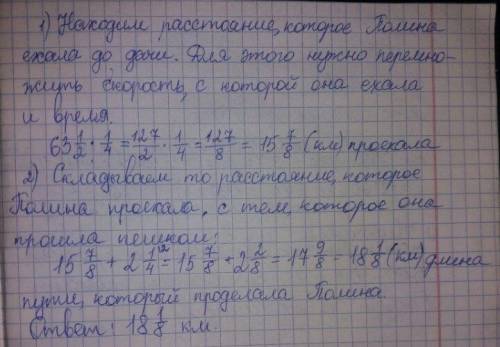 1) Находим расстояние, которое Полина
ехала до дачи. Для этого нужно перемно-
жить скорость, с которой она ехала
и время.
63 1/2 · 1/4 = 127/2 · 1/4 = 127/8 = 15 7/8 (км) проехала
2) Складываем то расстояние, которое
Полина проехала, с тем, которое она
прошла пешком:
15 7/8 + 2 1/4 = 15 7/8 + 2 2/8 = 17 9/8 = 18 1/8 (км) длина
пути, который проделала Полина.
Ответ: 18 1/8 км.